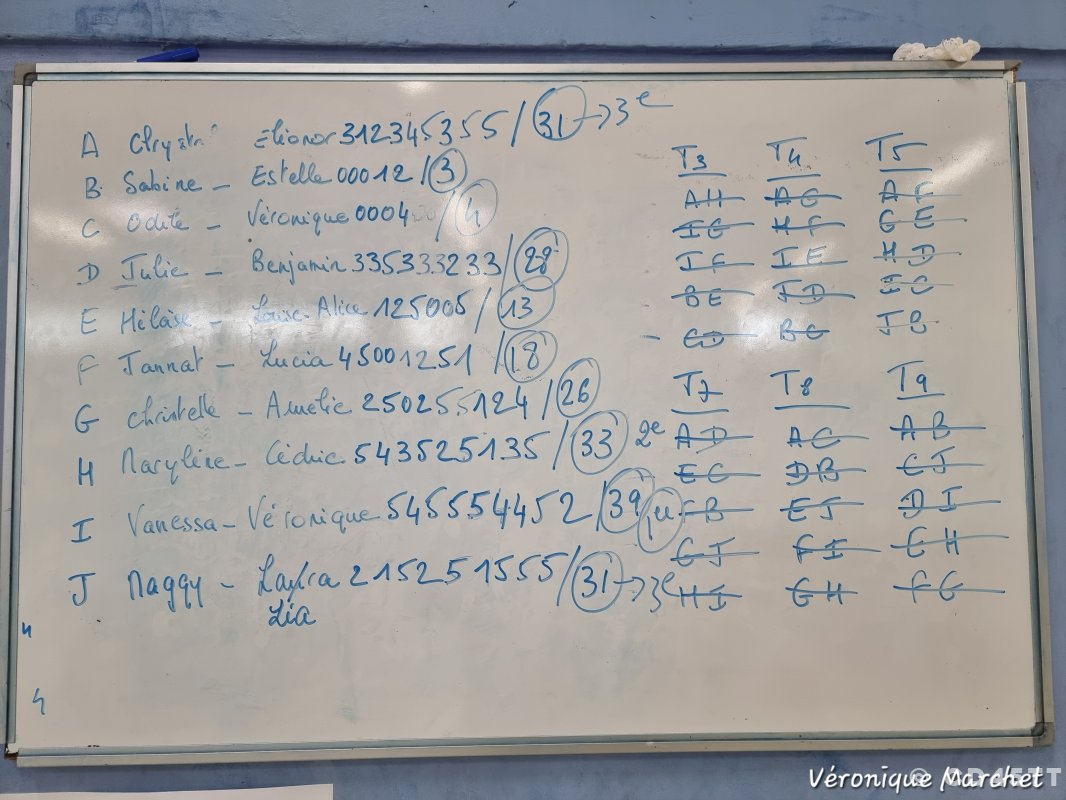 A Chrystn Elionor 312345355 / 31 → 3e
B Sabine - Estelle 00012 / 3
C Odile - Véronique 0004 / 4
D Julie - Benjamin 335333233 / 28
E Héloïse - Louise-Alice 125005 / 13
F Jannat - Lucia 45001251 / 18
G Christelle - Amélie 250255124 / 26
H Maryline - Cédric 543525135 / 33 2e
I Vanessa - Véronique 545554452 / 39 1er
J Maggy - 215251555 / 31 → 3e
Lia
T3 T4 T5
AH AG AF
IG HF GE
JF IE HD
BE JD IC
CD BC JB
T7 T8 T9
AD AC AB
EC DB CJ
FB EJ DI
GJ FI EH
HI GH FG
Véronique Marchet
© CD45TT